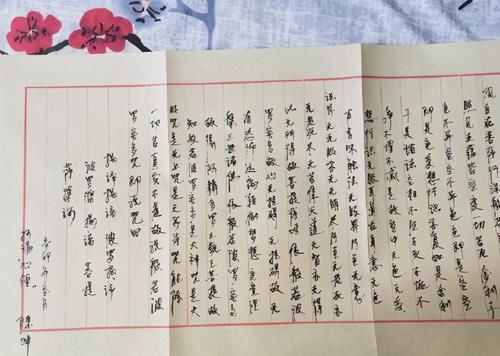 观自在菩萨行深般若
照见五蕴皆空度一切苦厄
色不异空空不异色色即是空空
即是色受想行识亦复如是舍利
子是诸法空相不生不灭不垢不
净不增不减是故空中无色无受
想行识无眼耳鼻舌身意无色
声香味触法无眼界乃至无意
识界无无明亦无无明尽乃至无老死亦
无老死尽无苦集灭道无智亦无得
以无所得故菩提萨埵依般若波
罗蜜多故心无挂碍无挂碍故无
有恐怖远离颠倒梦想究竟涅
槃三世诸佛依般若波罗蜜多
故得阿耨多罗三藐三菩提故
知般若波罗蜜多是大神咒是大
明咒是无上咒是无等等咒能除
一切苦真实不虚故说般若波
罗蜜多咒即说咒曰
揭谛揭谛 波罗揭谛
波罗僧揭谛 菩提
萨婆诃
癸卯年冬月
心经 陈坤